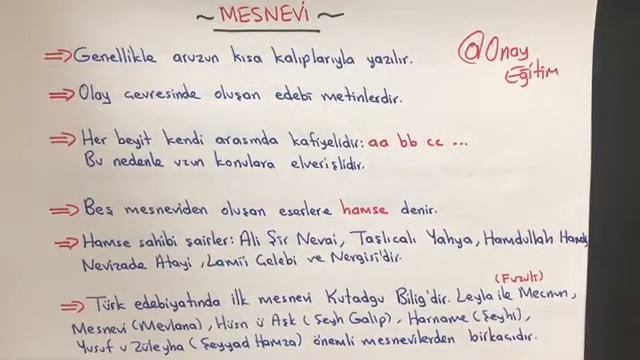 ~ MESNEVİ ~
@Onay
Eğitim
⇒ Genellikle aruzun kısa kalıplarıyla yazılır.
⇒ Olay çevresinde oluşan edebî metinlerdir.
⇒ Her beyit kendi arasında kafiyelidir: aa bb cc ...
Bu nedenle uzun konulara elverişlidir.
⇒ Beş mesneviden oluşan eserlere hamse denir.
⇒ Hamse sahibi şairler: Ali Şir Nevai, Taşlıcalı Yahya, Hamdullah Hamdi,
Nevizade Atayi, Lamii Çelebi ve Nergisi'dir.
(Fuzuli)
⇒ Türk edebiyatında ilk mesnevi Kutadgu Bilig'dir. Leyla ile Mecnun,
Mesnevi (Mevlana), Hüsn ü Aşk (Şeyh Galip), Harname (Şeyhi),
Yusuf u Züleyha (Şeyyad Hamza) önemli mesnevilerden birkaçıdır.